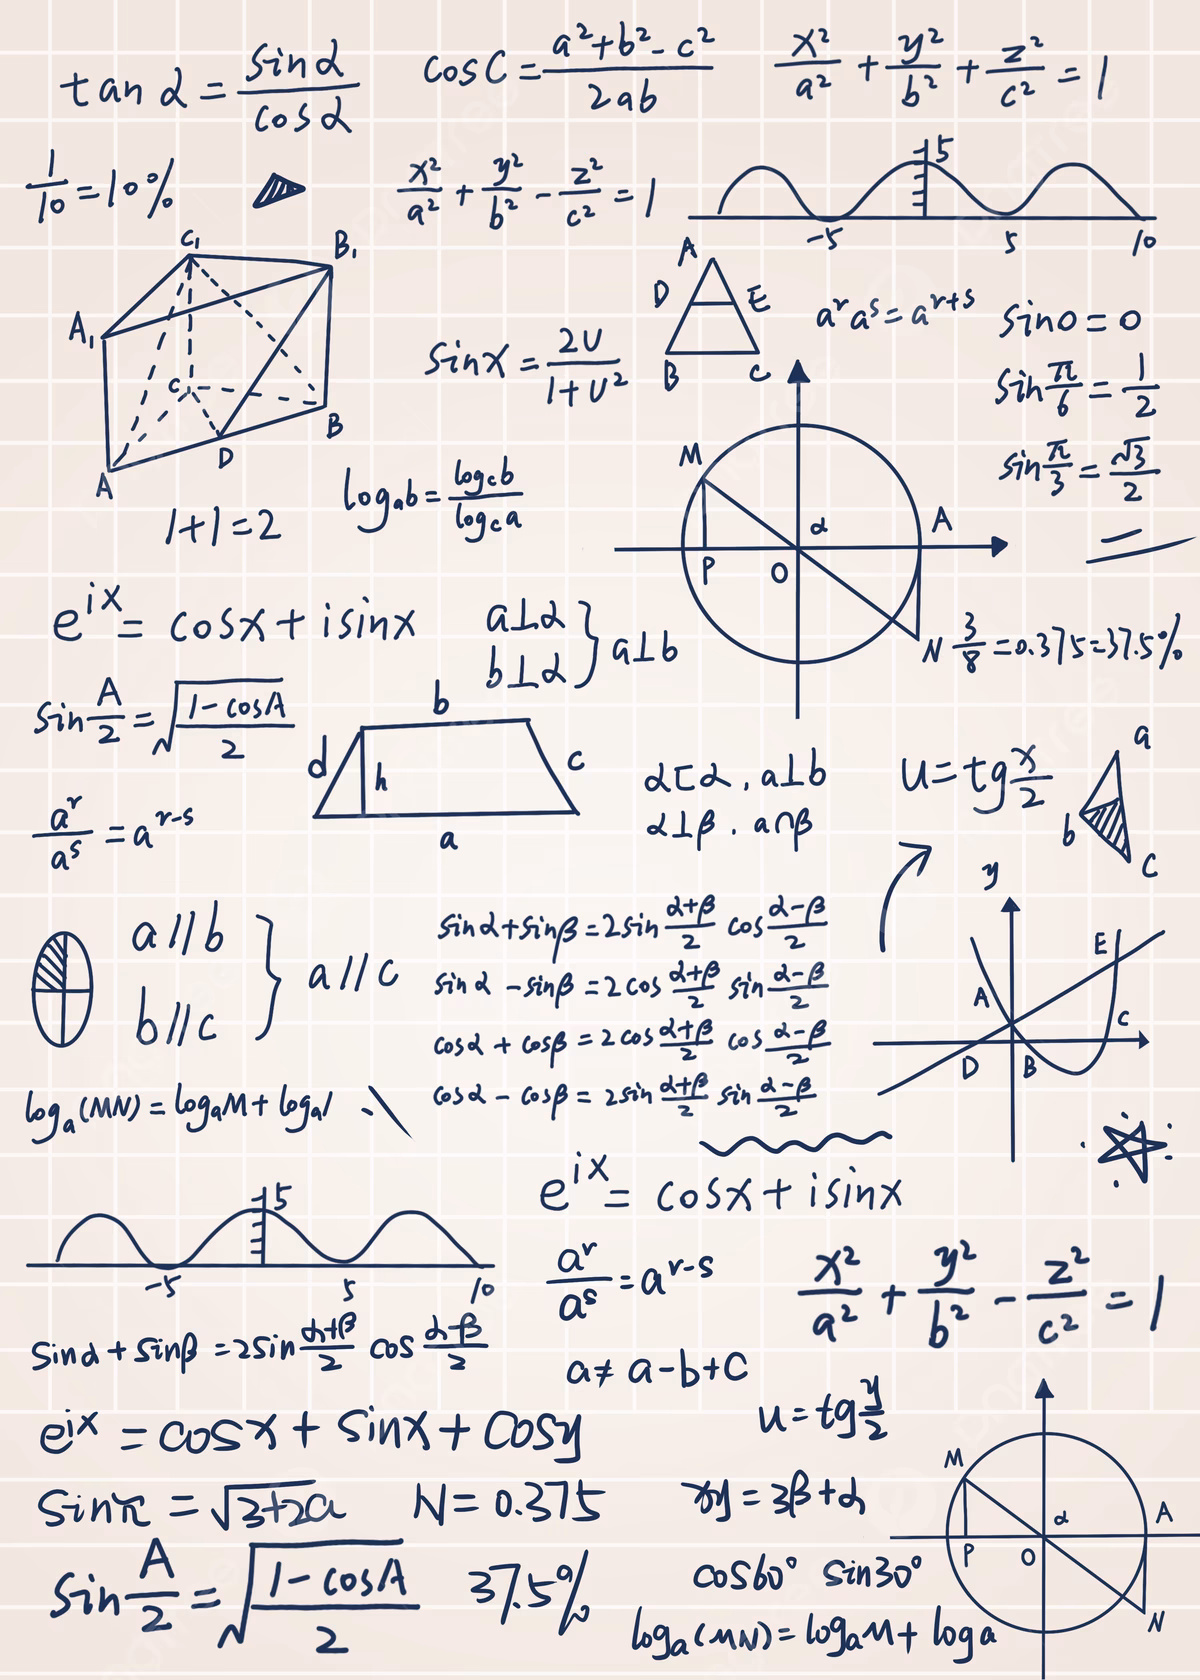 tan α = sin α / cos α
cos C = a²+b²-c² / 2ab
x²/a² + y²/b² + z²/c² = 1
1/10 = 10%
x²/a² + y²/b² - z²/c² = 1
5
-5 5 10
C₁ B₁
A₁
C
B
D
A
A
D E
B C
aʳaˢ = aʳ⁺ˢ
sin0 = 0
sin π/6 = 1/2
sin π/3 = √3/2
sinx = 2U / 1+U²
logₐb = log_c b / log_c a
1+1=2
M
α A
P O
N
3/8 = 0.375 = 37.5%
eⁱˣ = cosx + isinx
a⊥α
b⊥α } a⊥b
sin A/2 = √(1-cosA / 2)
b
d h c
a
α⊏α . a⊥b
α⊥β . a∩β
u = tg x/2
a
b
C
aʳ/aˢ = aʳ⁻ˢ
a//b
b//c } a//c
sinα+sinβ = 2sin α+β/2 cos α-β/2
sinα - sinβ = 2cos α+β/2 sin α-β/2
cosα + cosβ = 2cos α+β/2 cos α-β/2
cosα - cosβ = 2sin α+β/2 sin α-β/2
y
E
A C
D B
logₐ(MN) = logₐM + logₐ/
eⁱˣ = cosx + isinx
5
-5 5 10
aʳ/aˢ = aʳ⁻ˢ
x²/a² + y²/b² - z²/c² = 1
sinα + sinβ = 2sin α+β/2 cos α-β/2
a≠ a-b+c
eⁱˣ = cosx + sinx + cosy
u = tg y/2
sinπ = √3+2a
N = 0.375
xy = 3β+α
M
α A
P O
N
sin A/2 = √(1-cosA / 2)
37.5%
cos60° sin30°
logₐ(MN) = logₐM + log a